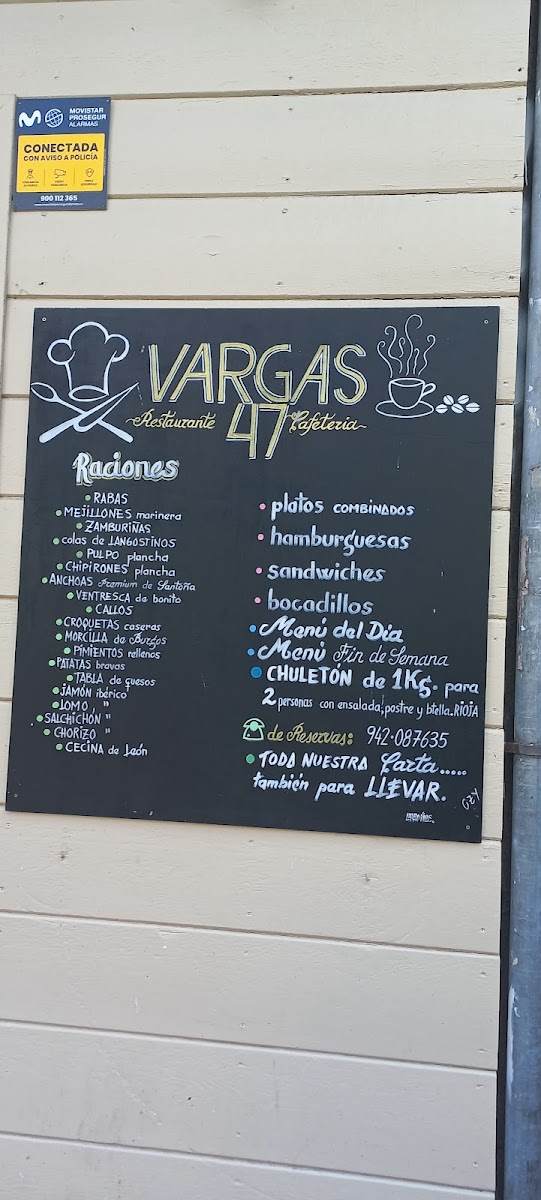 MOVISTAR
PROSEGUR
ALARMAS
CONECTADA
CON AVISO A POLICÍA
900 112 365
VARGAS
Restaurante 47 Cafeteria
Raciones
RABAS
MEJILLONES marinera
ZAMBURIÑAS
colas de LANGOSTINOS
PULPO plancha
CHIPIRONES plancha
ANCHOAS Premium de Santoña
VENTRESCA de bonito
CALLOS
CROQUETAS caseras
MORCILLA de Burgos
PIMIENTOS rellenos
PATATAS bravas
TABLA de quesos
JAMÓN ibérico
LOMO "
SALCHICHÓN "
CHORIZO "
CECINA de León
platos COMBINADOS
hamburguesas
sandwiches
bocadillos
Menú del Dia
Menú Fin de Semana
CHULETÓN de 1Kg. para
2 personas con ensalada, postre y btella. RIOJA
de Reservas: 942-087635
TODA NUESTRA Carta.....
también para LLEVAR.